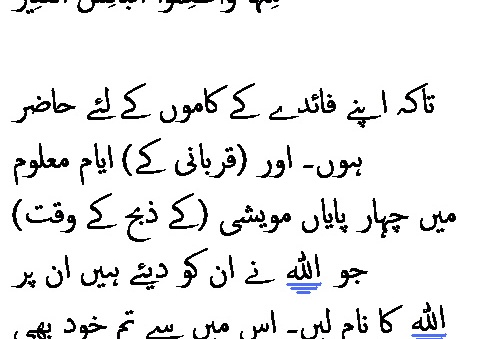 تاکہ اپنے فائدے کے کاموں کے لئے حاضر
ہوں۔ اور (قربانی کے) ایام معلوم
میں چہار پایاں مویشی (کے ذبح کے وقت)
جو الله نے ان کو دیئے ہیں ان پر
الله کا نام لیں۔ اس میں سے تم خود بھی